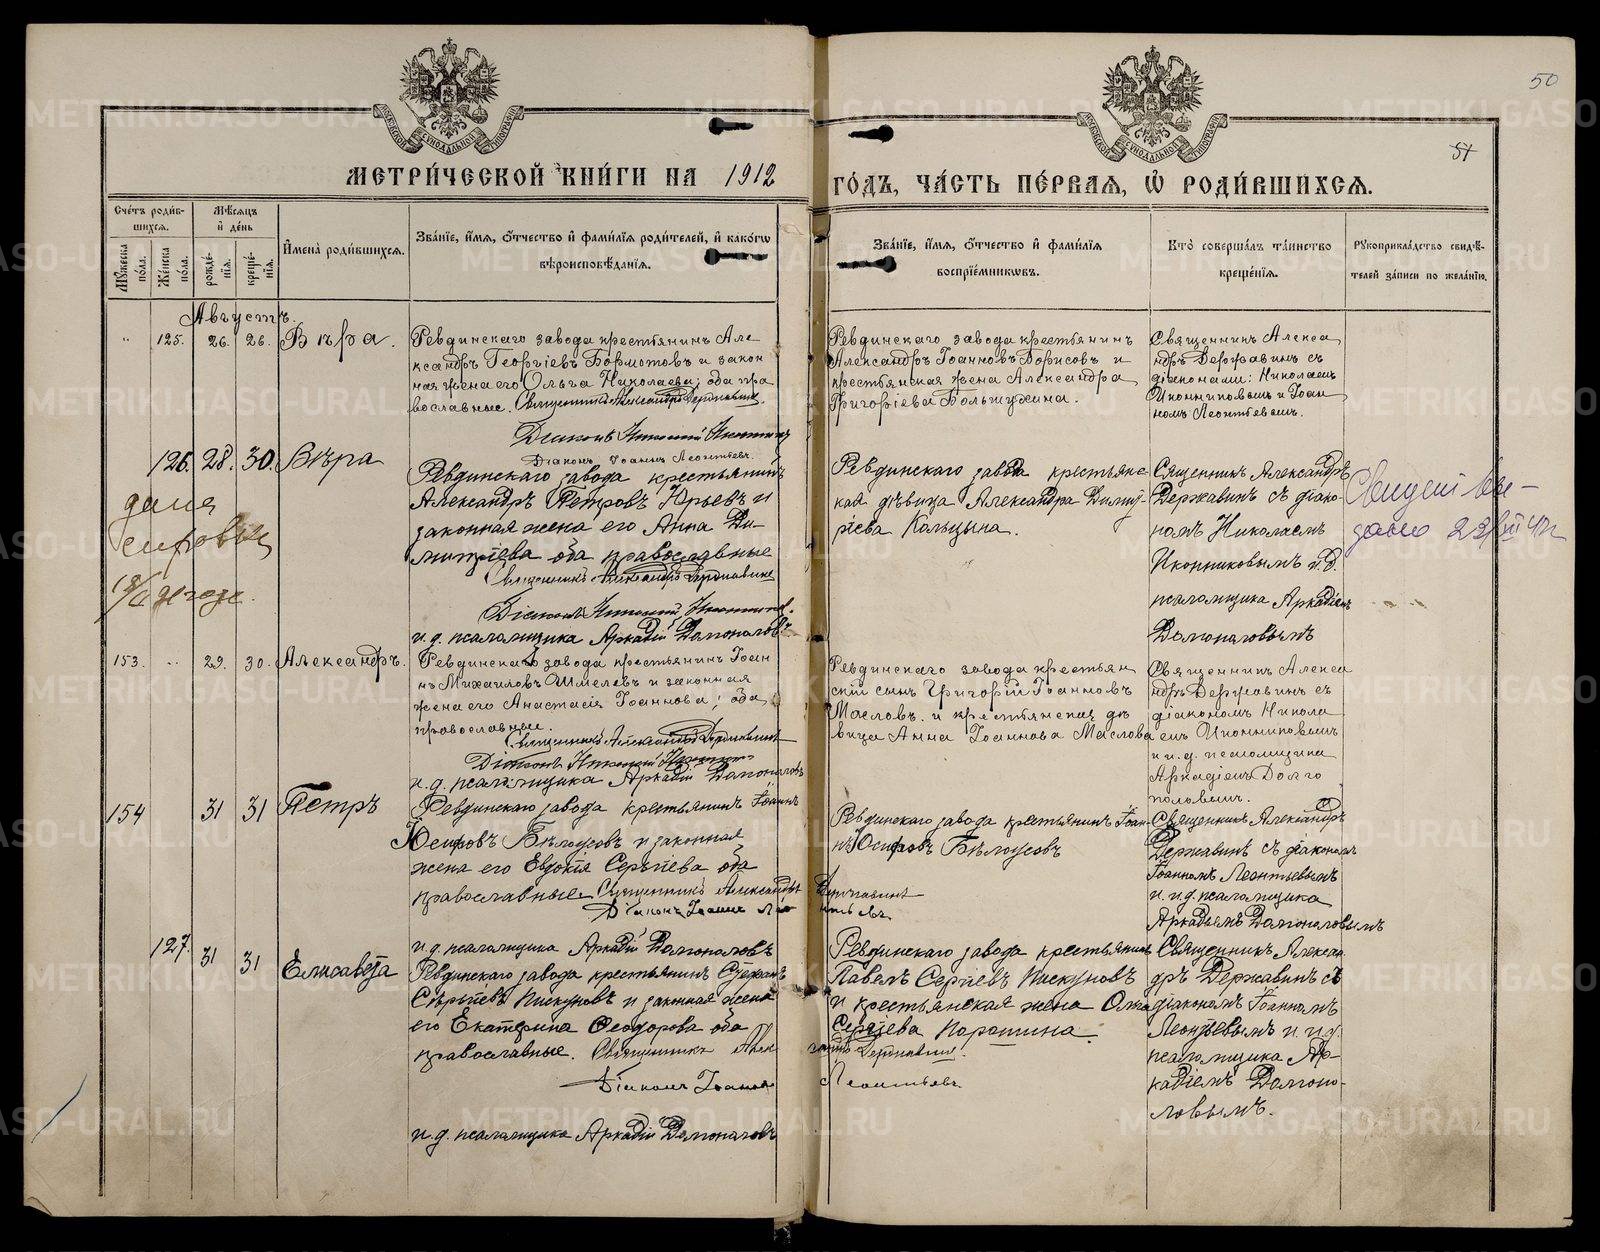 50
51
МЕТРИ́ЧЕСКОЙ КНИ́ГИ НА 1912 ГО́ДЪ, ЧА́СТЬ ПЕ́РВАЯ, Ѡ РОДИ́ВШИХСЯ.
Сче́тъ роди́в-
шихся.
Мѣ́сяцъ
и де́нь
Имена̀ роди́вшихся.
Зва́нїе, и́мя, ѻ́тчество и фами́лїя роди́телей, и како́гѡ
вѣроисповѣ́данїя.
Зва́нїе, и́мя, ѻ́тчество и фами́лїя
воспрїе́мниковъ.
Кто̀ соверша́лъ та́инство
креще́нїя.
Рукоприкла́дство свидѣ́-
телей за́писи по жела́нїю.
Му́жеска
по́ла.
Же́нска
по́ла.
рожде́-
нїя.
креще́-
нїя.
Августъ.
" 125. 26. 26. Вѣра.
Ревдинскаго завода крестьянинъ Але
ксандръ Георгіевъ Бормотовъ и закон
ная жена его Ольга Николаева; оба пра
вославные. Священникъ Александръ Державинъ.
Діаконъ Николай Иконниковъ
Діаконъ Іоаннъ Леонтьевъ.
Ревдинскаго завода крестьянинъ
Александръ Іоанновъ Борисовъ и
крестьянская жена Александра
Григоріева Больщухина.
Священникъ Алекса
ндръ Державинъ съ
діаконами: Николаемъ
Иконниковымъ и Іоан
номъ Леонтьевымъ.
126. 28. 30. Вѣра
Ревдинскаго завода крестьянинъ
Александръ Петровъ Юрьевъ и
законная жена его Анна Ди-
митріева оба православные
Священникъ Александръ Державинъ
Діаконъ Николай Иконниковъ.
и. д. псаломщика Аркадій Долгополовъ
Ревдинскаго завода крестьянс
кая дѣвица Александра Димит-
ріева Кольцына.
Священникъ Александръ
Державинъ съ діако-
номъ Николаемъ
Иконниковымъ и. д.
псаломщика Аркадіемъ
Долгополовымъ
153. " 29. 30. Александръ.
Ревдинскаго завода крестьянинъ Іоан
нъ Михаиловъ Шмелевъ и законная
жена его Анастасія Іоаннова; оба
православные.
Священникъ Александръ Державинъ
Діаконъ Николай Иконниковъ
и. д. псаломщика Аркадій Долгополовъ
Ревдинскаго завода крестьян
скій сынъ Григорій Іоанновъ
Масловъ и крестьянская дѣ
вица Анна Іоаннова Маслова
Священникъ Алекса
ндръ Державинъ съ
діакономъ Никола
емъ Иконниковымъ
и и. д. псаломщика
Аркадіемъ Долго
половымъ.
154 31 31 Петръ
Ревдинскаго завода крестьянинъ Іоаннъ
Юсифовъ Бѣлоусовъ и законная
жена его Евдокія Сергѣева оба
православные. Священникъ Александръ Державинъ
Діаконъ Іоаннъ Леонтьевъ
и. д. псаломщика Аркадій Долгополовъ
Ревдинскаго завода крестьянинъ Іоан-
нъ Юсифовъ Бѣлоусовъ
Священникъ Александръ
Державинъ съ діакономъ
Іоанномъ Леонтьевымъ
и и. д. псаломщика
Аркадіемъ Долгополовымъ
127. 31 31 Елисавета
Ревдинскаго завода крестьянинъ Стефанъ
Сергѣевъ Пискуновъ и законная жена
его Екатерина Ѳеодорова оба
православные. Священникъ Александръ Державинъ.
Діаконъ Іоаннъ Леонтьевъ
и. д. псаломщика Аркадій Долгополовъ
Ревдинскаго завода крестьянинъ
Павелъ Сергіевъ Пискуновъ
и крестьянская жена Ольга
Сергіева Паротина.
Священникъ Алексан
дръ Державинъ съ
діакономъ Іоанномъ
Леонтьевымъ и и. д.
псаломщика Ар-
кадіемъ Долгопо-
ловымъ.
METRIKI.GASO-URAL.RU